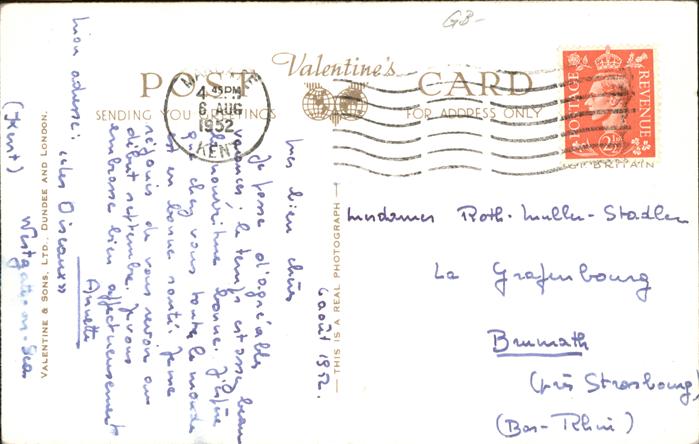 GB-
Valentine's
POST CARD
SENDING YOU GREETINGS
FOR ADDRESS ONLY
4 45PM
6 AUG
1952
KENT
POSTAGE REVENUE
2½
6 août 1952.
mes bien chères
Je passe d'agréables
vacances; le temps est assez beau
la nourriture bonne. J'espère
que chez vous toute le monde
est en bonne santé. Je me
réjouis de vous revoir au
début septembre. Je vous
embrasse bien affectueusement
Annette
mon adresse: "Les Oiseaux"
Westgate-on-Sea
(Kent)
VALENTINE & SONS, LTD., DUNDEE AND LONDON.
— THIS IS A REAL PHOTOGRAPH —
Mesdames Roth-Muller-Stadler
La Grafenbourg
Brumath
(près Strasbourg)
(Bas-Rhin)